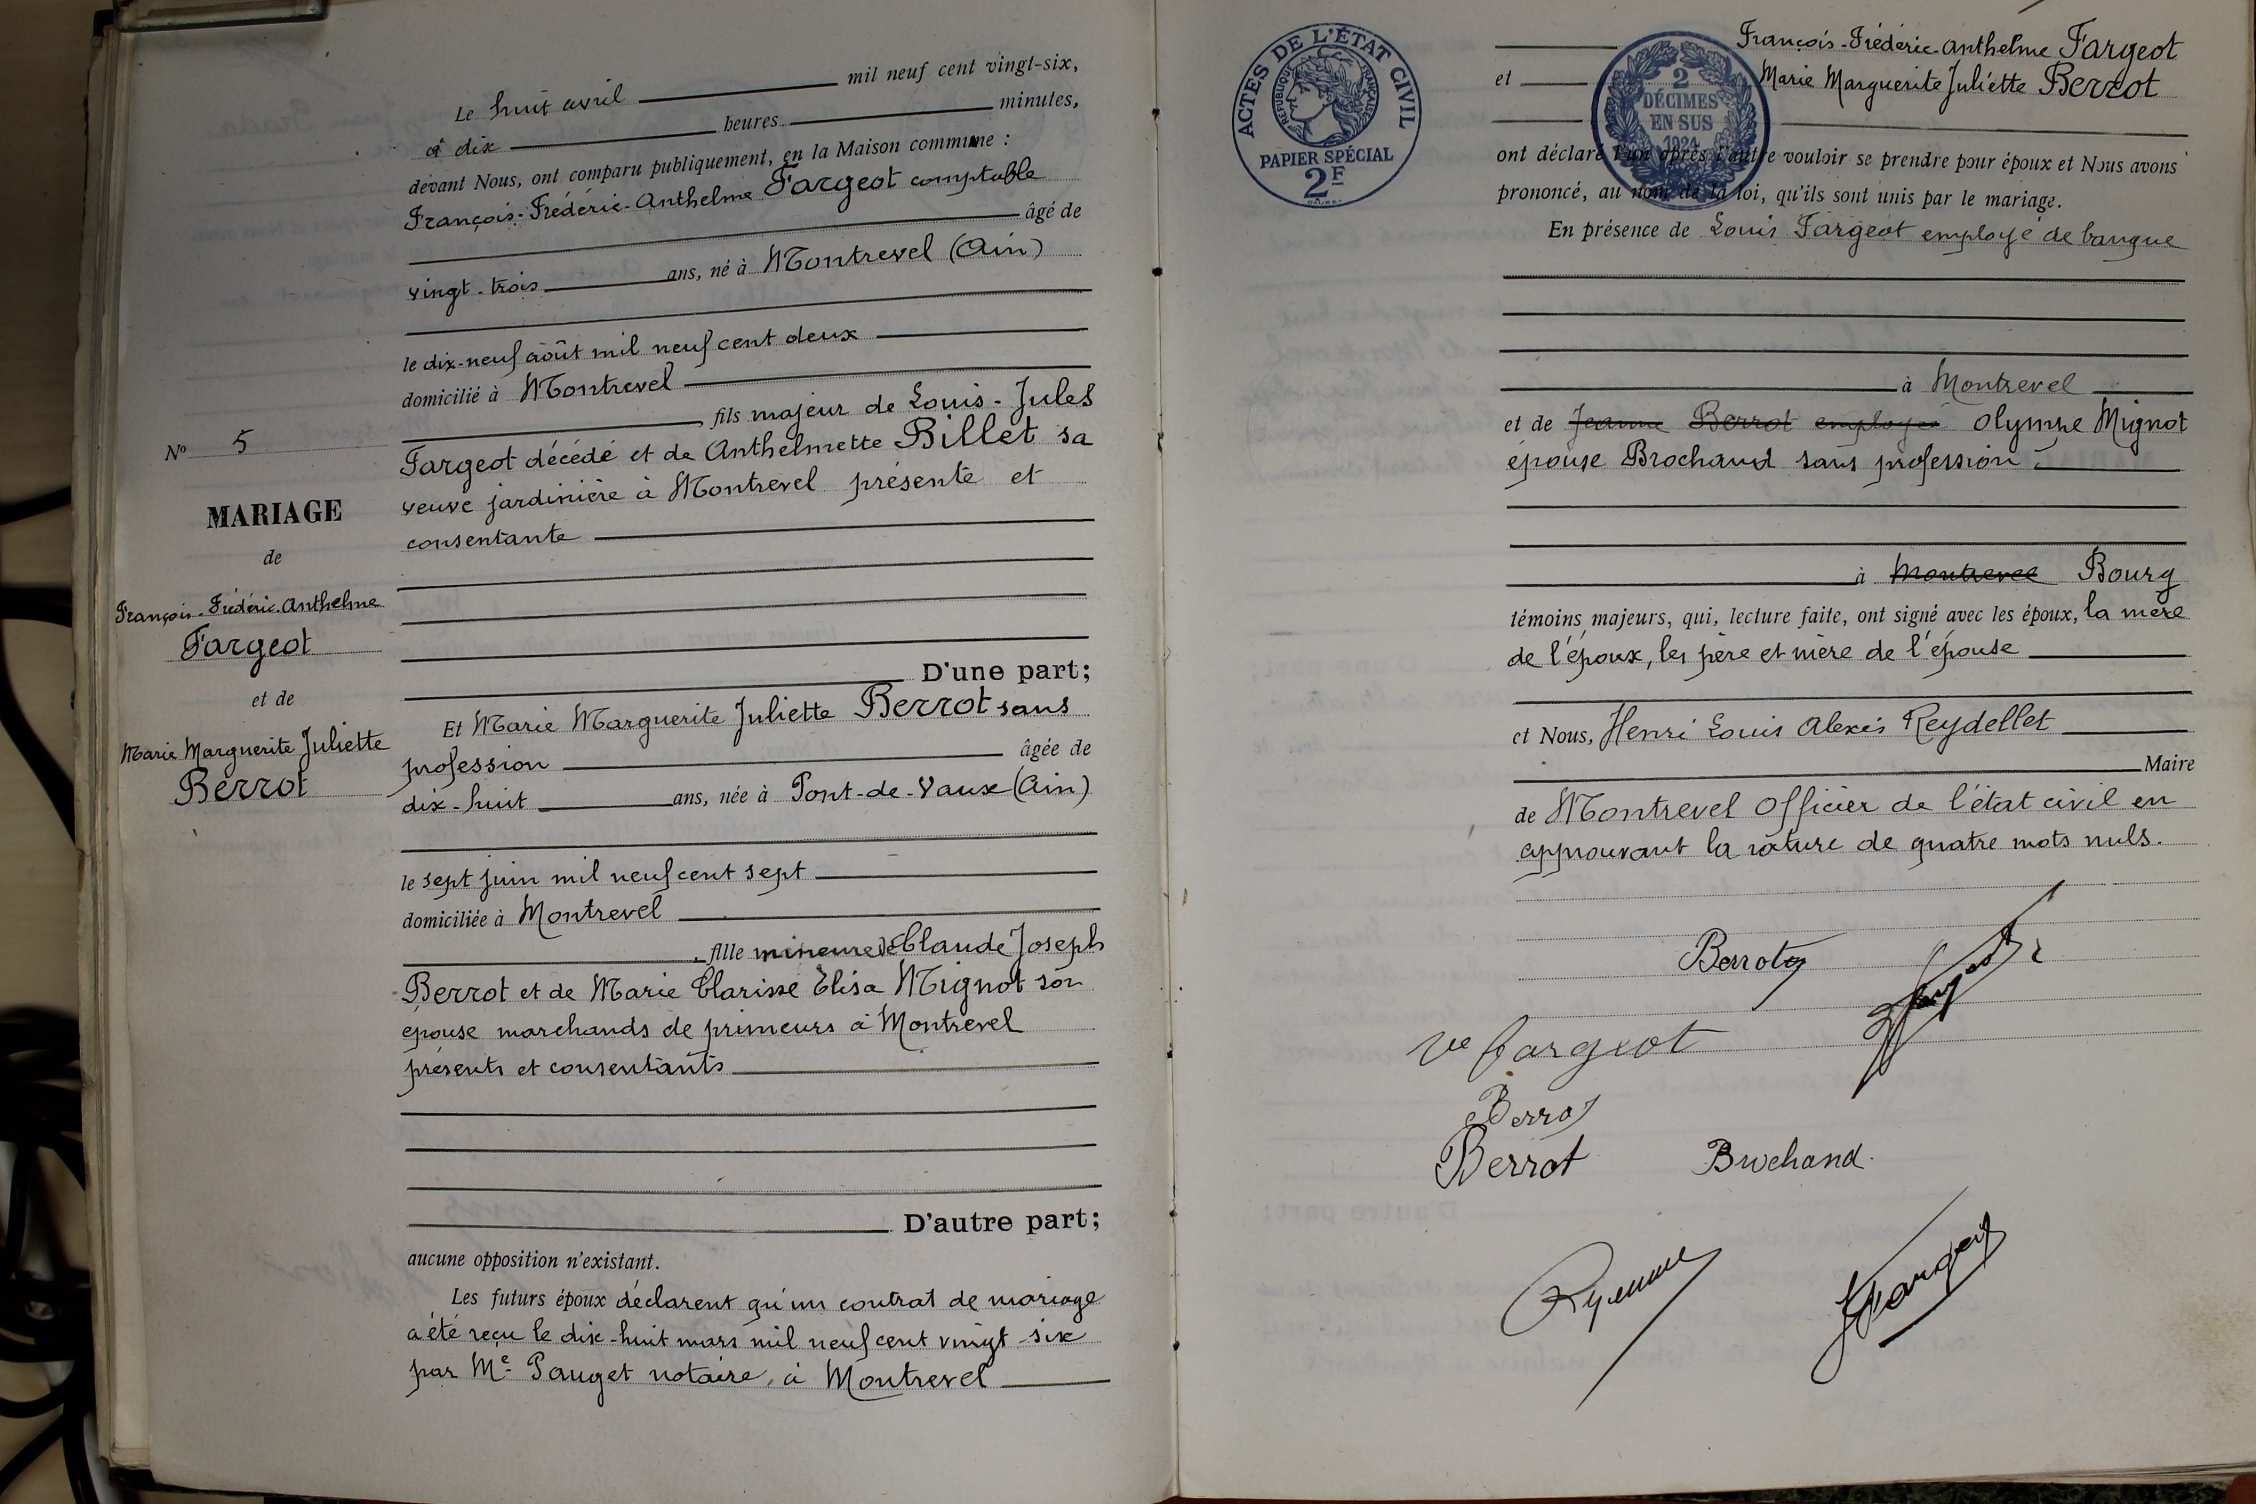 Le huit avril mil neuf cent vingt-six,
à dix heures minutes,
devant Nous, ont comparu publiquement, en la Maison commune :
François-Frédéric-Anthelme Fargeot comptable
âgé de
vingt-trois ans, né à Montrevel (Ain)
le dix-neuf août mil neuf cent deux
domicilié à Montrevel
fils majeur de Louis-Jules
Fargeot décédé et de Anthelmette Billet sa
veuve jardinière à Montrevel présente et
consentante
D'une part;
Et Marie Marguerite Juliette Berrot sans
profession âgée de
dix-huit ans, née à Pont-de-Vaux (Ain)
le sept juin mil neuf cent sept
domiciliée à Montrevel
fille mineure de Claude Joseph
Berrot et de Marie Clarisse Elisa Mignot son
épouse marchands de primeurs à Montrevel
présents et consentants
D'autre part;
aucune opposition n'existant.
Les futurs époux déclarent qu'un contrat de mariage
a été reçu le dix-huit mars mil neuf cent vingt-six
par Me Pauget notaire, à Montrevel
No 5
MARIAGE
de
François-Frédéric-Anthelme
Fargeot
et de
Marie Marguerite Juliette
Berrot
ACTES DE L'ÉTAT CIVIL
RÉPUBLIQUE FRANÇAISE
PAPIER SPÉCIAL
2F
2
DÉCIMES
EN SUS
1924
François-Frédéric-Anthelme Fargeot
et Marie Marguerite Juliette Berrot
ont déclaré l'un après l'autre vouloir se prendre pour époux et Nous avons
prononcé, au nom de la loi, qu'ils sont unis par le mariage.
En présence de Louis Fargeot employé de banque
à Montrevel
et de Jeanne Berrot employée Olympe Mignot
épouse Brochand sans profession
à Montrevel Bourg
témoins majeurs, qui, lecture faite, ont signé avec les époux, la mère
de l'époux, les père et mère de l'épouse
et Nous, Henri Louis Alexis Reydellet
Maire
de Montrevel Officier de l'état civil en
approuvant la rature de quatre mots nuls.
Berrot
Fargeot
Ve Fargeot
Berrot
Berrot Brochand
Fargeot